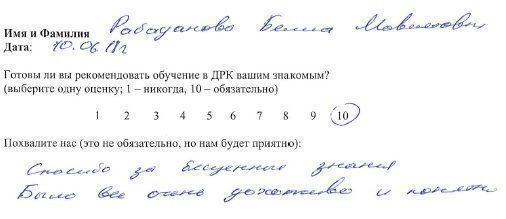 Имя и Фамилия Рабаданова Белла
Дата: 10.06.18г
Готовы ли вы рекомендовать обучение в ДРК вашим знакомым?
(выберите одну оценку; 1 – никогда, 10 – обязательно)
1 2 3 4 5 6 7 8 9 10
Похвалите нас (это не обязательно, но нам будет приятно):
Спасибо за бесценные знания
Было все очень и понятно